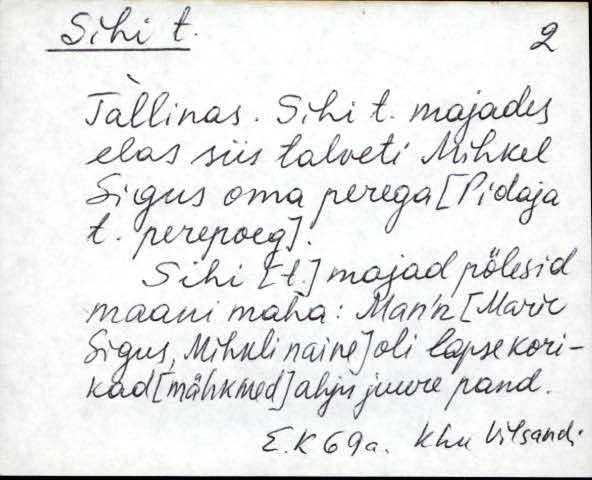 Sihi t.
2
Tàllinas. Sihi t. majades
elas siis talveti Mihkel
Sigus oma perega [Pidaja
t. perepoeg].
Sihi [t.] majad põlesid
maani maha: Mari'n [Marie
Sigus, Mihkli naine] oli lapse kori-
kad [mähkmed] ahju juure pand.
E.K 69a. Khk Vilsandi